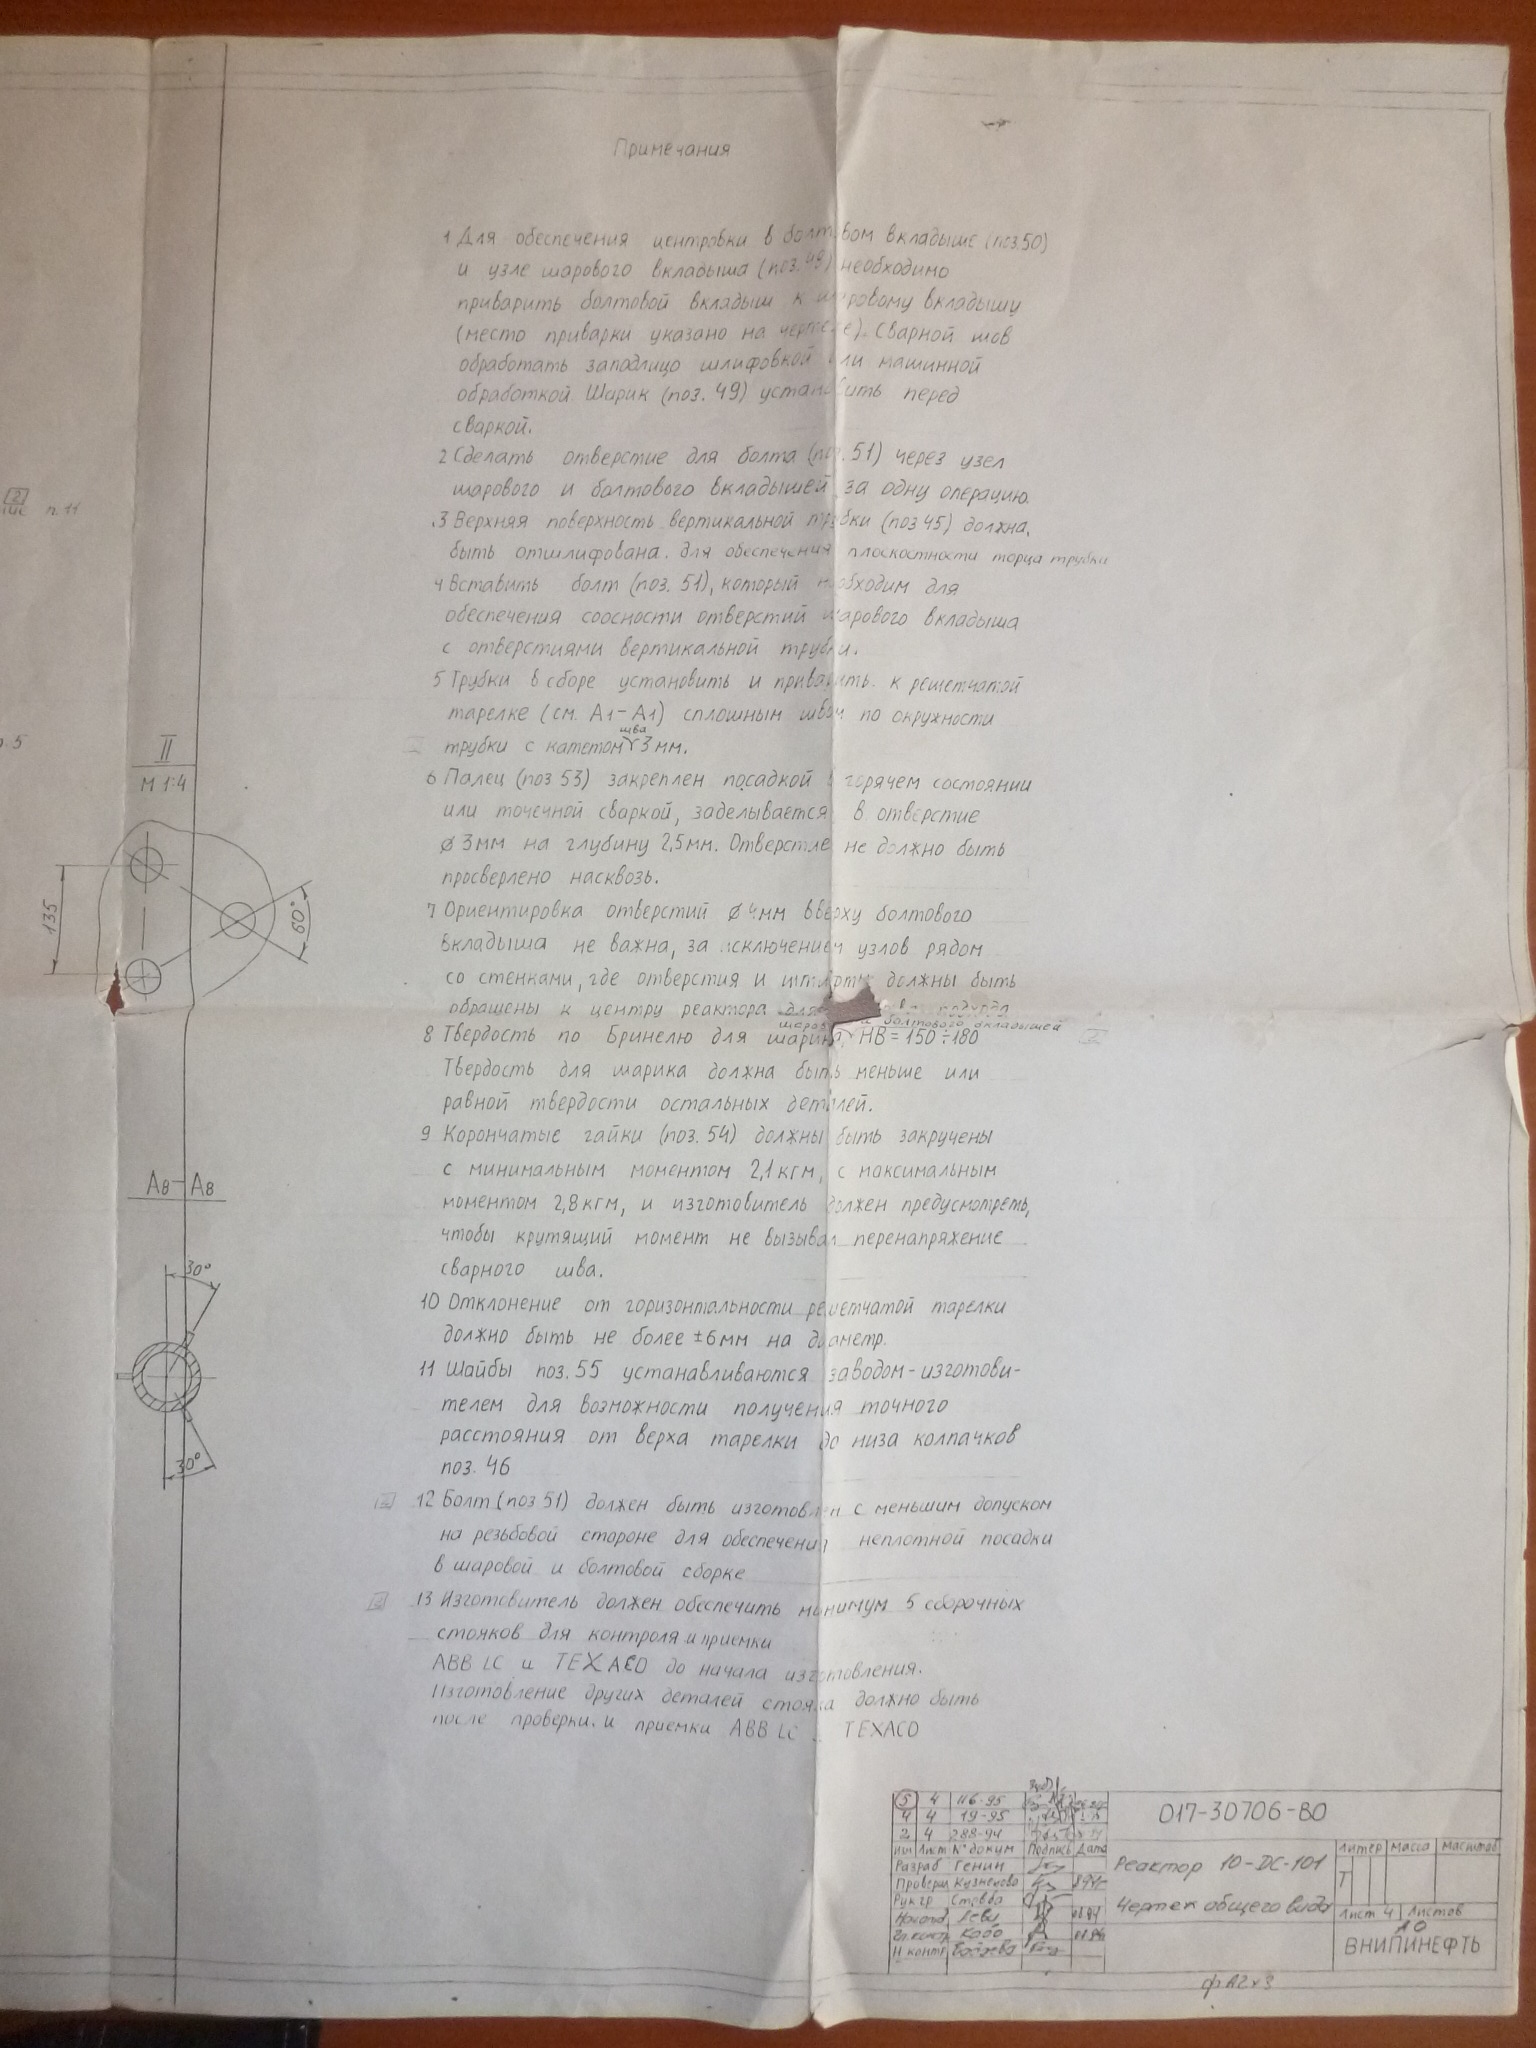 Примечания
1 Для обеспечения центровки в болтовом вкладыше (поз.50)
и узле шарового вкладыша (поз.49) необходимо
приварить болтовой вкладыш к шаровому вкладышу
(место приварки указано на чертеже). Сварной шов
обработать заподлицо шлифовкой или машинной
обработкой. Шарик (поз. 49) установить перед
сваркой.
2 Сделать отверстие для болта (поз. 51) через узел
шарового и болтового вкладышей за одну операцию.
3 Верхняя поверхность вертикальной трубки (поз 45) должна
быть отшлифована для обеспечения плоскостности торца трубки
4 Вставить болт (поз. 51), который необходим для
обеспечения соосности отверстий шарового вкладыша
с отверстиями вертикальной трубки.
5 Трубки в сборе установить и приварить к решетчатой
тарелке (см. А1-А1) сплошным швом по окружности
шва
трубки с катетом 3 мм.
6 Палец (поз 53) закреплен посадкой в горячем состоянии
или точечной сваркой, заделывается в отверстие
ø 3мм на глубину 2,5мм. Отверстие не должно быть
просверлено насквозь.
7 Ориентировка отверстий ø 4мм вверху болтового
вкладыша не важна, за исключением узлов рядом
со стенками, где отверстия и должны быть
обращены к центру реактора для подхода
болтового вкладышей
8 Твердость по Бринелю для шарика, HB = 150÷180
Твердость для шарика должна быть меньше или
равной твердости остальных деталей.
9 Корончатые гайки (поз. 54) должны быть закручены
с минимальным моментом 2,1 кгм, с максимальным
моментом 2,8 кгм, и изготовитель должен предусмотреть,
чтобы крутящий момент не вызывал перенапряжение
сварного шва.
10 Отклонение от горизонтальности решетчатой тарелки
должно быть не более ±6мм на диаметр.
11 Шайбы поз. 55 устанавливаются заводом-изготови-
телем для возможности получения точного
расстояния от верха тарелки до низа колпачков
поз. 46
2
12 Болт (поз 51) должен быть изготовлен с меньшим допуском
на резьбовой стороне для обеспечения неплотной посадки
в шаровой и болтовой сборке
13 Изготовитель должен обеспечить минимум 5 сборочных
стояков для контроля и приемки
ABB LC и TEXACO до начала изготовления.
Изготовление других деталей стояка должно быть
после проверки и приемки ABB LC TEXACO
2
п. 11
II
М 1:4
135
60°
А8-А8
30°
30°
5 4 116-95
4 4 19-95
2 4 288-94
Изм Лист № докум Подпись Дата
Разраб Генин
Провери Кузнецова
Рук гр
Н контр
017-30706-ВО
Реактор 10-DC-101
Чертеж общего вида
Литер Масса Масштаб
Т
Лист 4 Листов
АО
ВНИПИНЕФТЬ
ф А2х3